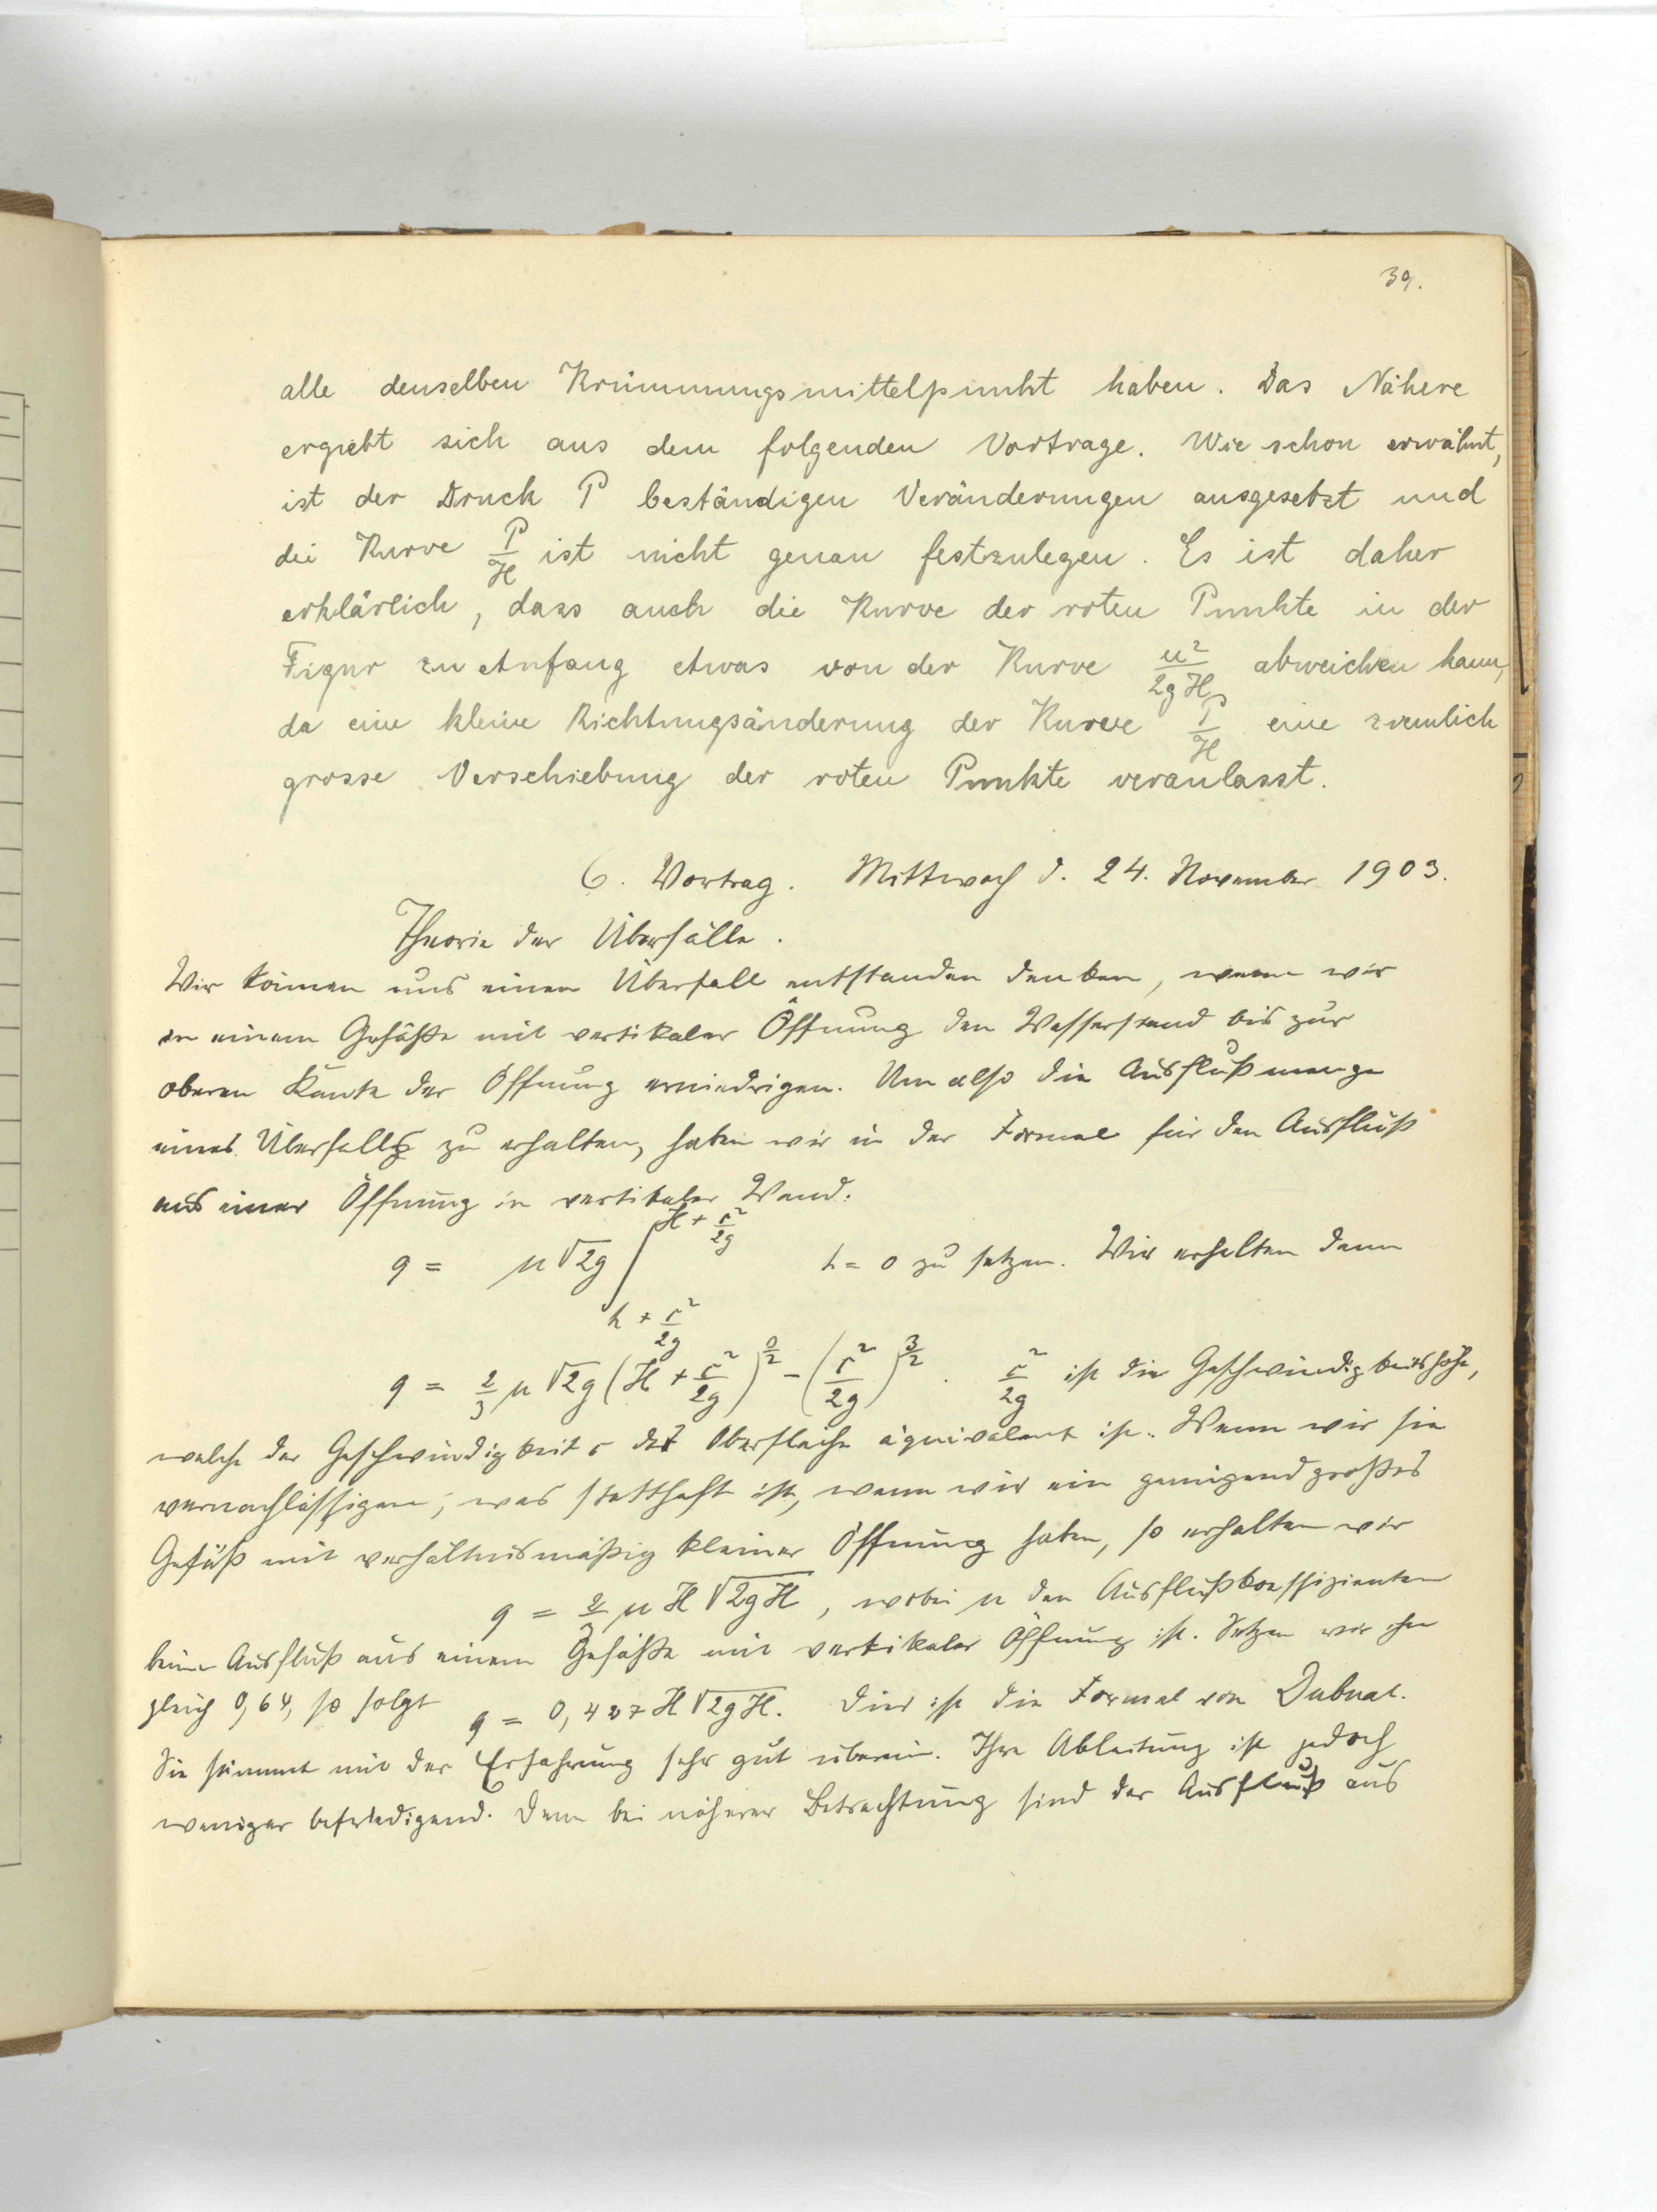 39.
alle denselben Krümmungsmittelpunkt haben. Das Nähere
ergiebt sich aus dem folgenden Vortrage. Wie schon erwähnt,
ist der Druck P beständigen Veränderungen ausgesetzt und
die Kurve P/H ist nicht genau festzulegen. Es ist daher
erklärlich, dass auch die Kurve der roten Punkte in der
Figur zu Anfang etwas von der Kurve u²/2gH abweichen kann,
da eine kleine Richtungsänderung der Kurve P/H eine ziemlich
grosse Verschiebung der roten Punkte veranlasst.
6. Vortrag. Mittwoch d. 24. November 1903.
Theorie der Überfälle.
Wir können uns einen Überfall entstanden denken, wenn wir
in einem Gefäße mit vertikaler Öffnung den Wasserstand bis zur
oberen Kante der Öffnung erniedrigen. Um also die Ausflußmenge
eines Überfalls zu erhalten, haben wir in der Formel für den Ausfluß
aus einer Öffnung in vertikaler Wand:
q = μ√2g ∫ H + c²/2g h + c²/2g h = 0 zu setzen. Wir erhalten dann
q = 2/3 μ √2g (H + c²/2g)^3/2 − (c²/2g)^3/2. c²/2g ist die Geschwindigkeitshöhe,
welche der Geschwindigkeit c der Oberfläche äquivalent ist. Wenn wir sie
vernachlässigen, was statthaft ist, wenn wir ein genügend großes
Gefäß mit verhältnismäßig kleiner Öffnung haben, so erhalten wir
q = 2/3 μ H √2gH, wobei μ den Ausflußkoeffizienten
beim Ausfluß aus einem Gefäße mit vertikaler Öffnung ist. Setzen wir ihn
gleich 0,64, so folgt q = 0,427 H √2gH. Dies ist die Formel von Dubuat.
Sie stimmt mit der Erfahrung sehr gut überein. Ihre Ableitung ist jedoch
weniger befriedigend. Denn bei näherer Betrachtung sind der Ausfluß aus